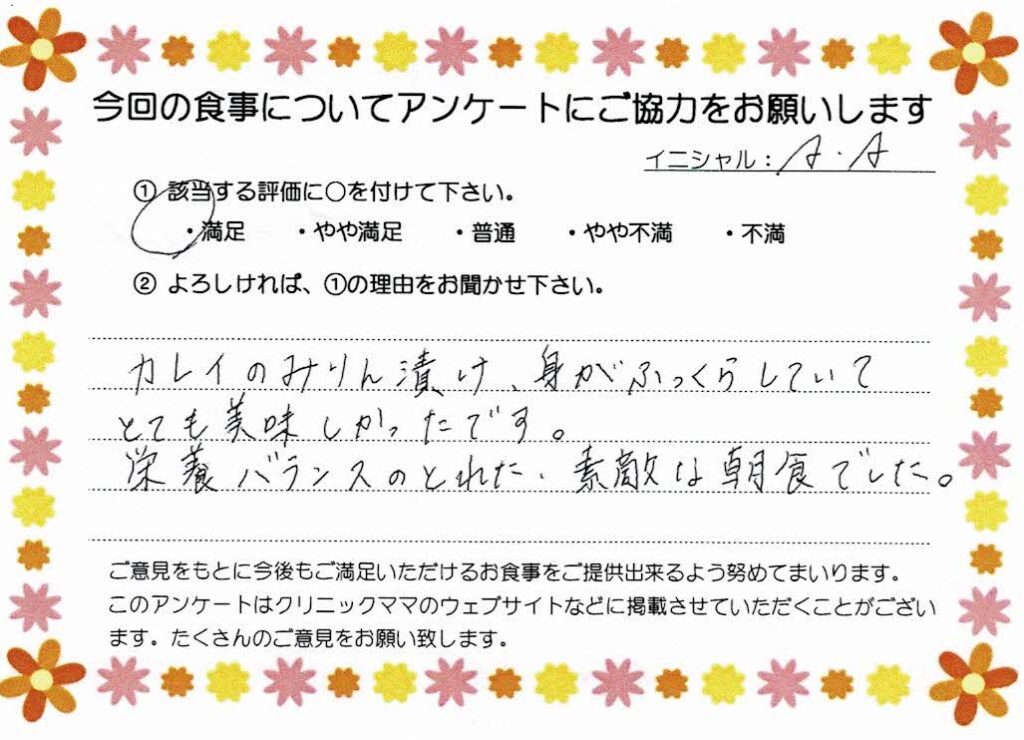 今回の食事についてアンケートにご協力をお願いします
イニシャル：A・A
① 該当する評価に○を付けて下さい。
・満足 ・やや満足 ・普通 ・やや不満 ・不満
② よろしければ、①の理由をお聞かせ下さい。
カレイのみりん漬け、身がふっくらしていて
とても美味しかったです。
栄養バランスのとれた、素敵な朝食でした。
ご意見をもとに今後もご満足いただけるお食事をご提供出来るよう努めてまいります。
このアンケートはクリニックママのウェブサイトなどに掲載させていただくことがござい
ます。たくさんのご意見をお願い致します。